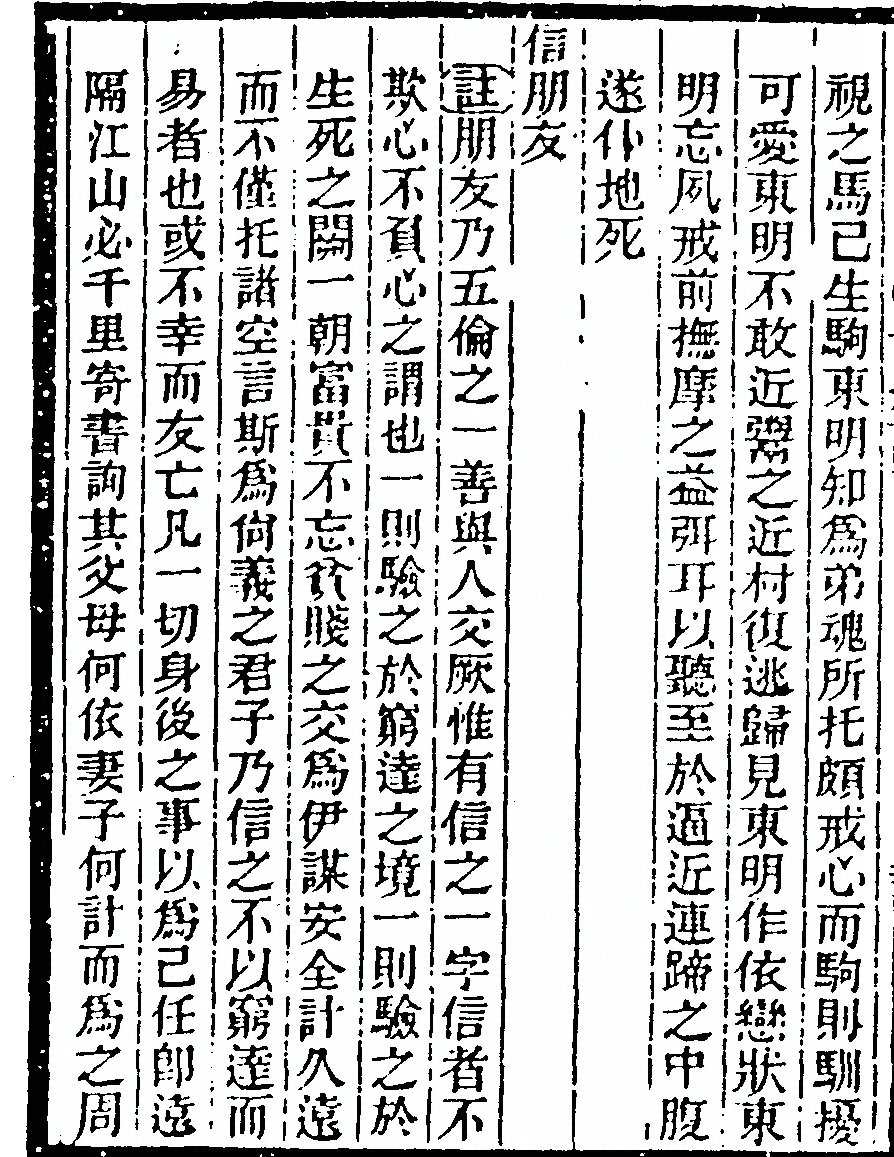 視之馬己生駒東明知爲弟魂所托頗戒心而駒則馴擾
可愛東明不敢近鬻之近村復逃歸見東明作依戀狀東
明忘夙戒前撫摩之益弭耳以聽至於逼近連蹄之中腹
遂仆地死
信朋友
註朋友乃五倫之一善與人交厥惟有信之一字信者不
欺心不負心之謂也一則驗之於窮達之境一則驗之於
生死之關一朝富貴不忘貧賤之交爲伊謀安全計久遠
而不僅托諸空言斯爲尙義之君子乃信之不以窮達而
易者也或不幸而友亡凡一切身後之事以爲己任卽遠
隔江山必千里寄書詢其父母何依妻子何計而爲之周